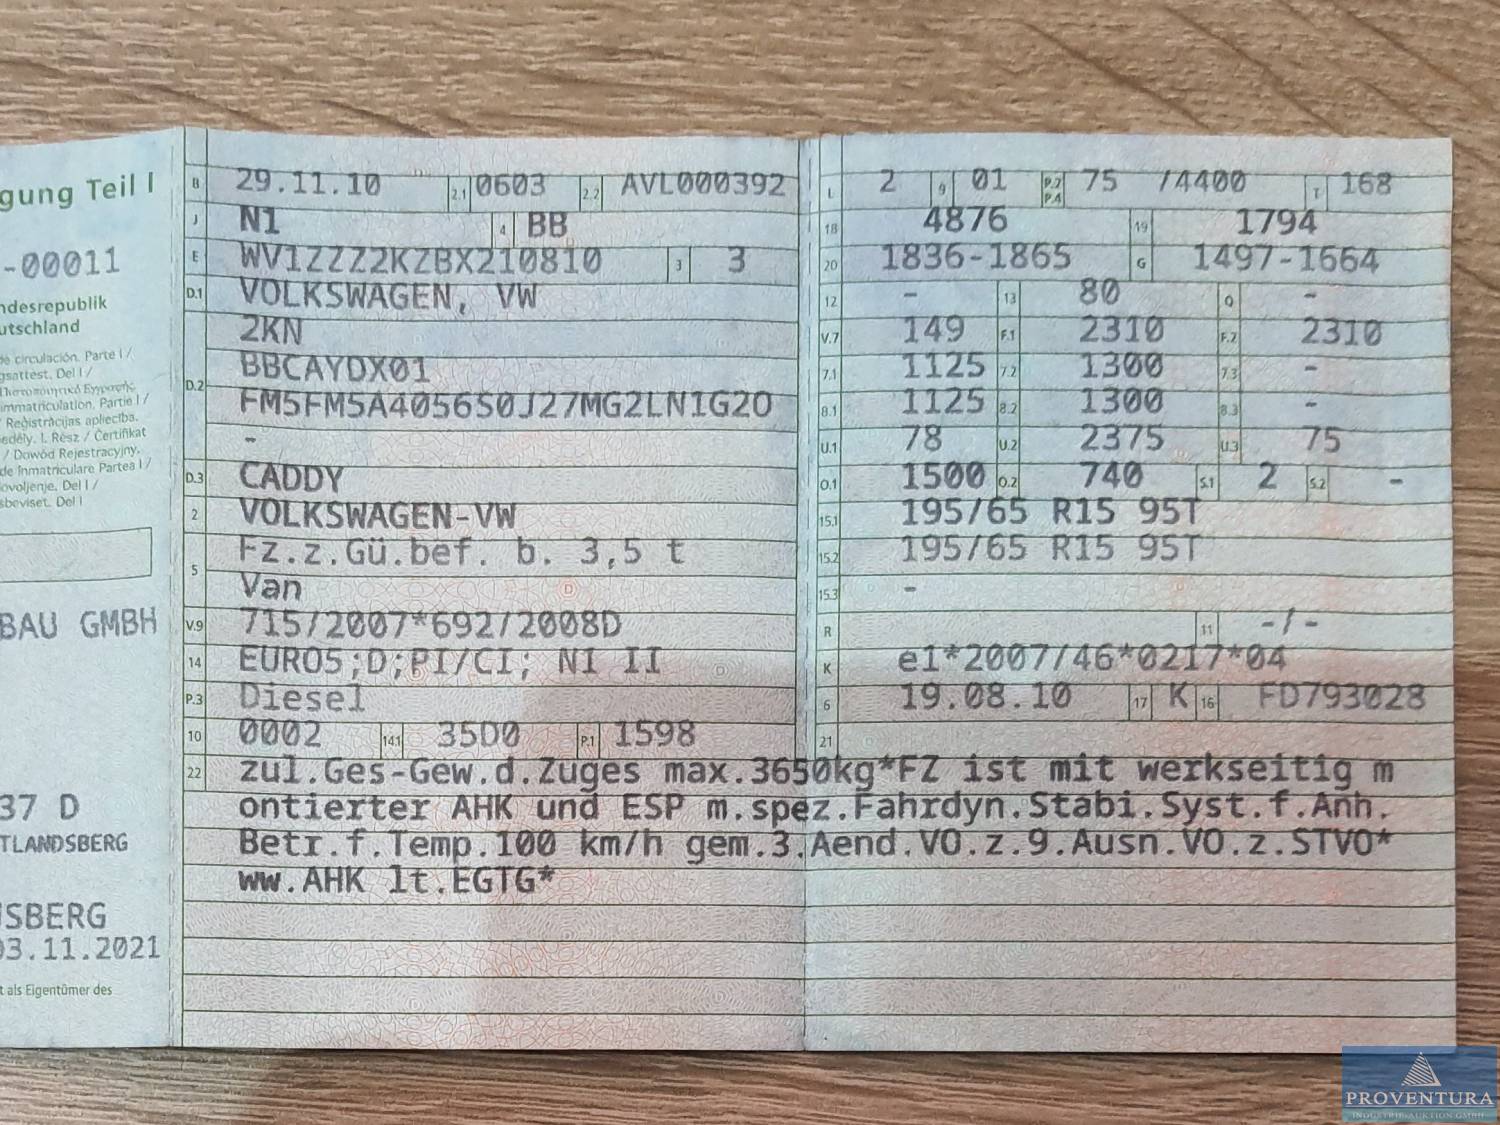 gung Teil I
-00011
ndesrepublik
utschland
de circulación. Parte I /
gsattest. Del I /
immatriculation. Partie I /
/ Reģistrācijas apliecība.
edély. I. Rész / Čertifikat
/ Dowód Rejestracyjny.
de Inmatriculare Partea I /
ovoljenje. Del I /
sbeviset. Del I
BAU GMBH
37 D
TLANDSBERG
USBERG
03.11.2021
t als Eigentümer des
B 29.11.10 2.1 0603 2.2 AVL000392
J N1 4 BB
E WV1ZZZ2KZBX210810 3 3
D.1 VOLKSWAGEN, VW
2KN
D.2 BBCAYDX01
FM5FM5A4056S0J27MG2LN1G2O
-
D.3 CADDY
2 VOLKSWAGEN-VW
5 Fz.z.Gü.bef. b. 3,5 t
Van
V.9 715/2007*692/2008D
14 EURO5;D;PI/CI; N1 II
P.3 Diesel
10 0002 14.1 35D0 P.1 1598
L 2 9 01 P.2 P.4 75 /4400 T 168
18 4876 19 1794
20 1836-1865 G 1497-1664
12 - 13 80 Q -
V.7 149 F.1 2310 F.2 2310
7.1 1125 7.2 1300 7.3 -
8.1 1125 8.2 1300 8.3 -
U.1 78 U.2 2375 U.3 75
O.1 1500 O.2 740 S.1 2 S.2 -
15.1 195/65 R15 95T
15.2 195/65 R15 95T
15.3 -
R 11 -/-
K e1*2007/46*0217*04
6 19.08.10 17 K 16 FD793028
21
22 zul.Ges-Gew.d.Zuges max.3650kg*FZ ist mit werkseitig m
ontierter AHK und ESP m.spez.Fahrdyn.Stabi.Syst.f.Anh.
Betr.f.Temp.100 km/h gem.3.Aend.VO.z.9.Ausn.VO.z.STVO*
ww.AHK lt.EGTG*
PROVENTURA
INDUSTRIE-AUKTION GMBH